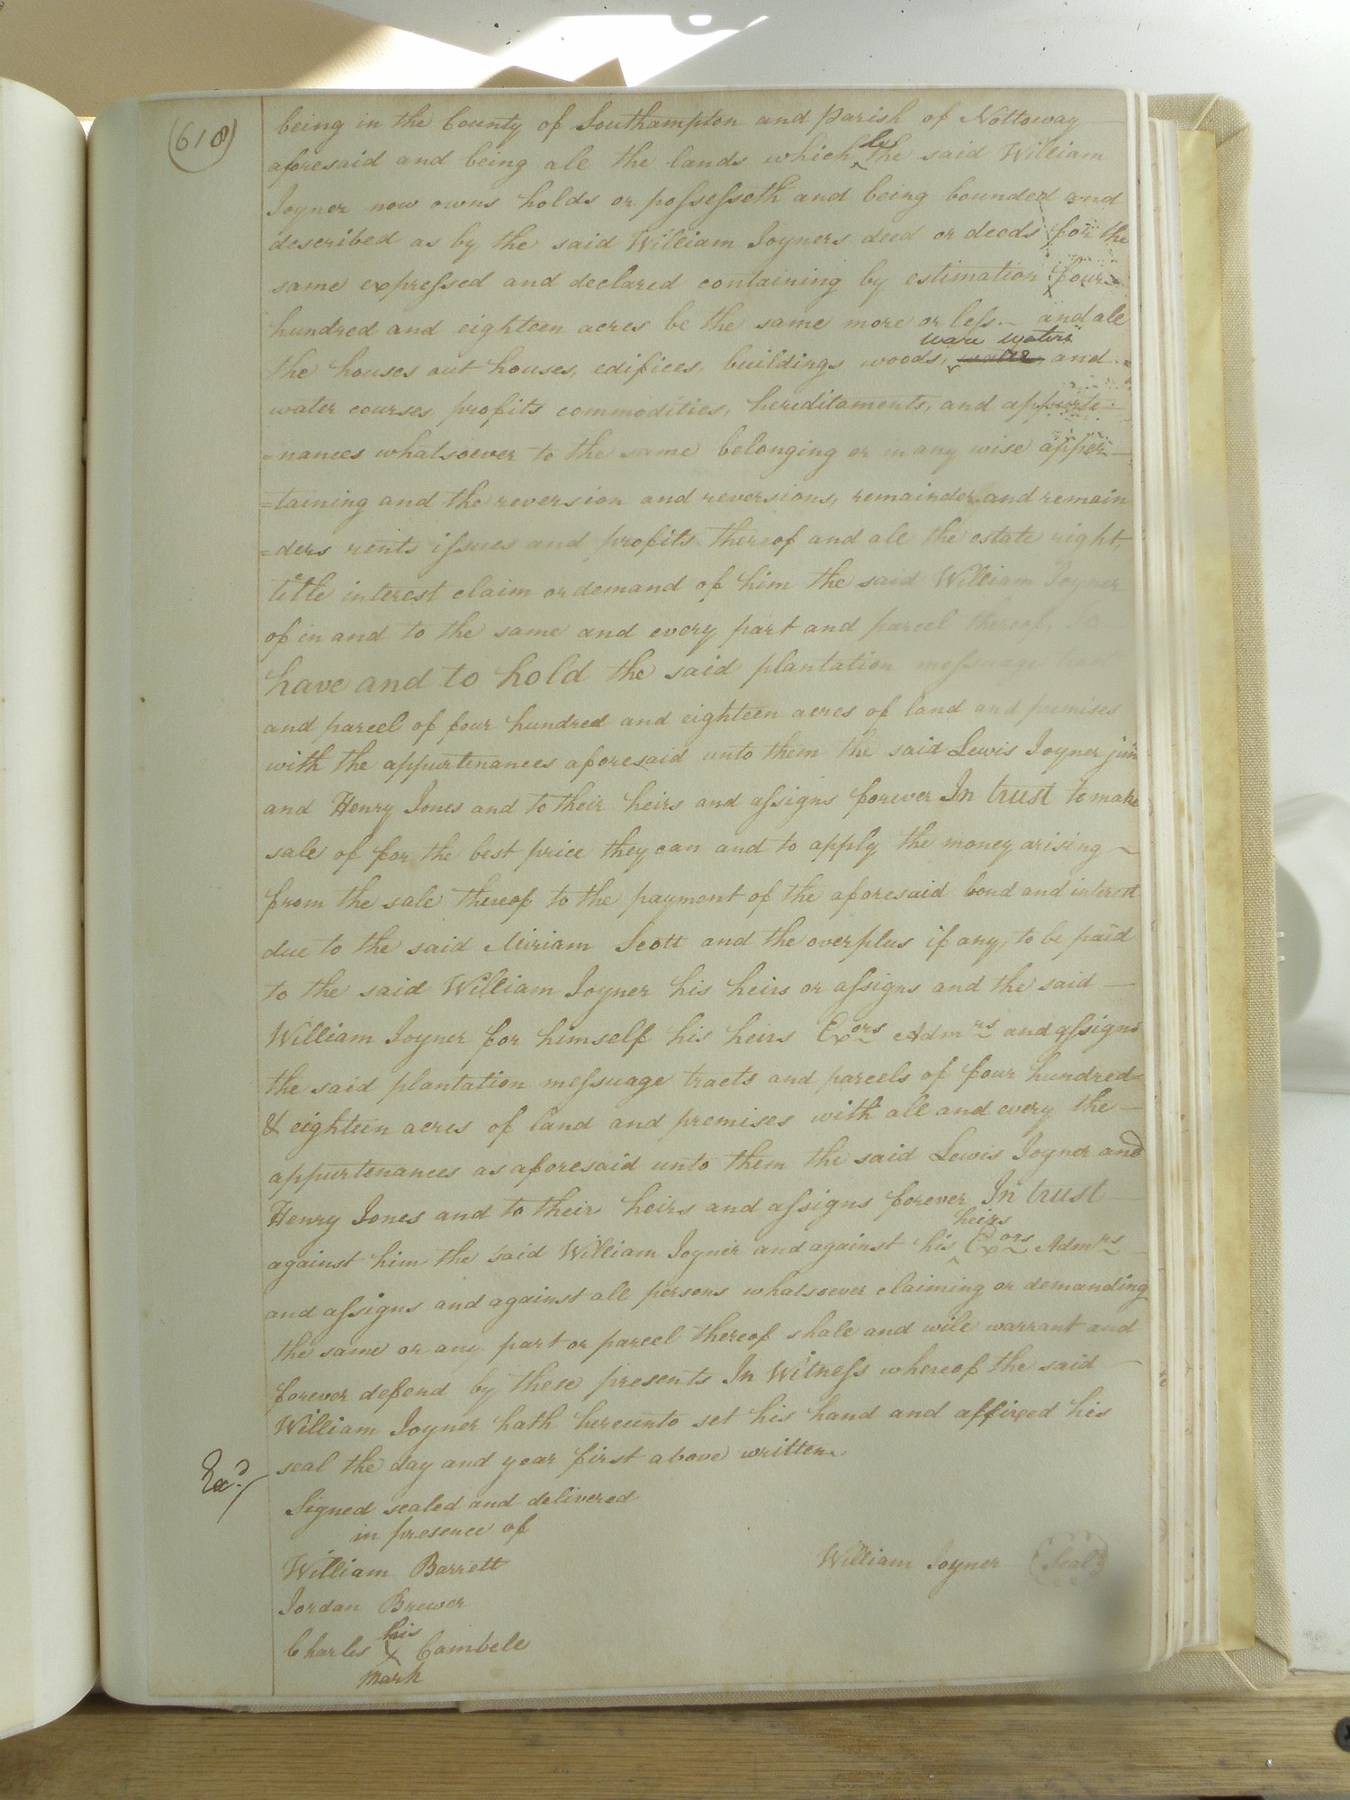 (618)
being in the County of Southampton and Parish of Nottoway
aforesaid and being all the lands which he the said William
Joyner now owns holds or possesseth and being bounded and
described as by the said William Joyners deed or deeds for the
same expressed and declared containing by estimation four
hundred and eighteen acres be the same more or less and all
the houses out houses, edifices, buildings woods, ware waters and
water courses, profits commodities, hereditaments, and appurte
=nances whatsoever to the same belonging or in any wise apper
=taining and the reversion and reversions, remainder and remain
=ders rents issues and profits thereof and all the estate right,
title interest claim or demand of him the said William Joyner
of in and to the same and every part and parcel thereof. To
have and to hold the said plantation messuage tract
and parcel of four hundred and eighteen acres of land and premises
with the appurtenances aforesaid unto them the said Lewis Joyner jun
and Henry Jones and to their heirs and assigns forever In trust to make
sale of for the best price they can and to apply the money arising
from the sale thereof to the payment of the aforesaid bond and interest
due to the said Miriam Scott and the overplus if any, to be paid
to the said William Joyner his heirs or assigns and the said
William Joyner for himself his heirs Exors Admrs and assigns
the said plantation messuage tracts and parcels of four hundred
& eighteen acres of land and premises with all and every the
appurtenances as aforesaid unto them the said Lewis Joyner and
Henry Jones and to their heirs and assigns forever In trust
against him the said William Joyner and against his heirs Exors Admrs
and assigns and against all persons whatsoever claiming or demanding
the same or any part or parcel thereof shall and will warrant and
forever defend by these presents In Witness whereof the said
William Joyner hath hereunto set his hand and affixed his
seal the day and year first above written
Exd.
Signed sealed and delivered
in presence of
William Barrett
William Joyner (Seal)
Jordan Brewer
Charles his X mark Cambele